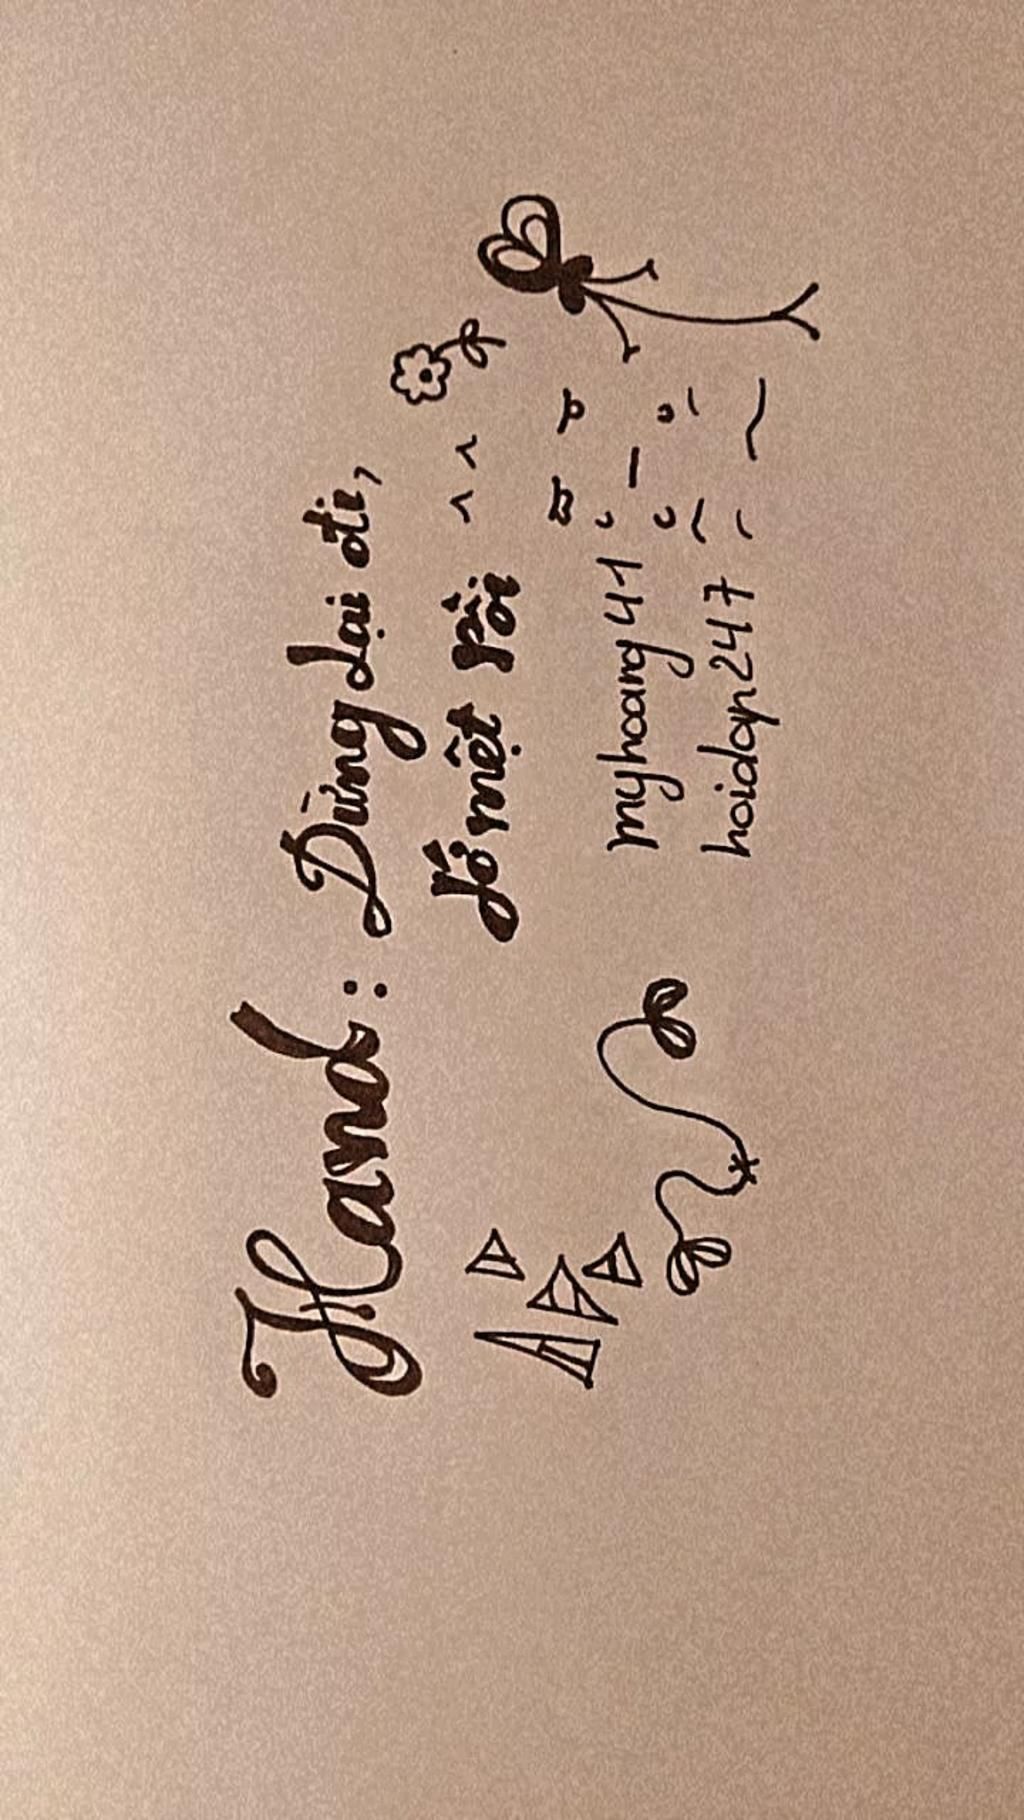 Hand: Dừng lại đi,
tớ mệt rồi
myhoang41
hoidap247